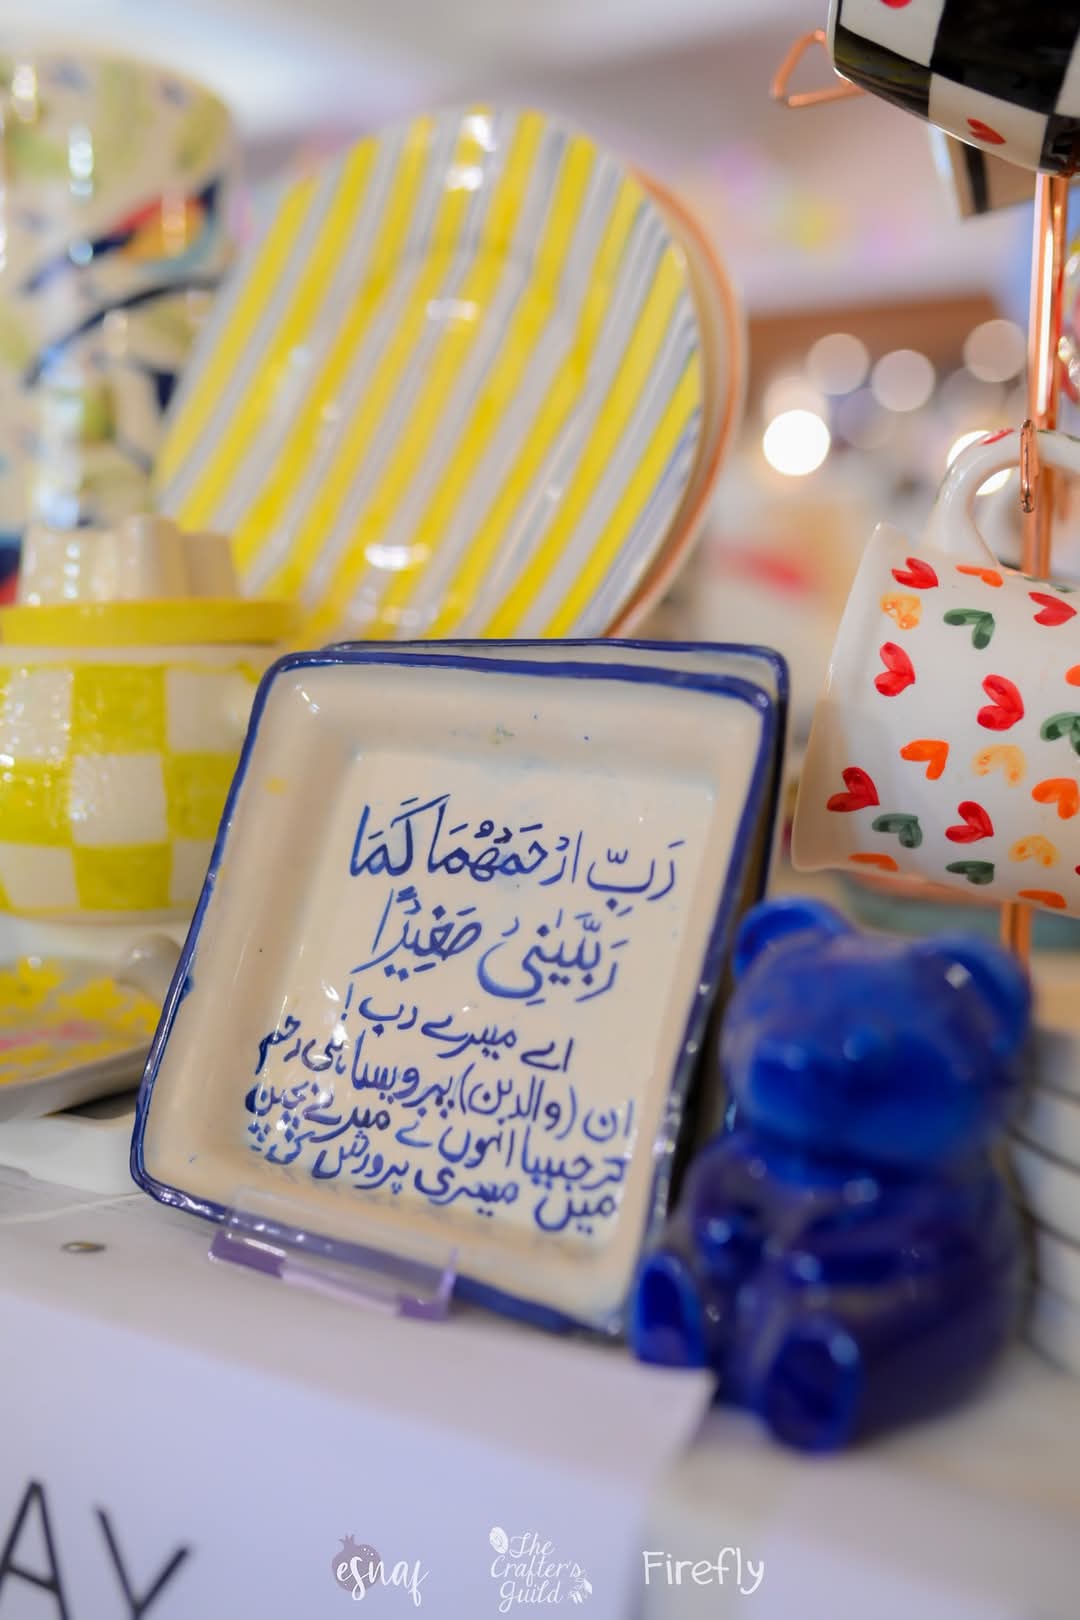 رَبِّ ارْحَمْهُمَا كَمَا
رَبَّيٰنِيْ صَغِيْرًا
اے میرے رب!
ان (والدین) پر ویسا ہی رحم
کر جیسا انہوں نے میرے بچپن
میں میری پرورش کی
AY
esnaf
The Crafter's Guild
Firefly